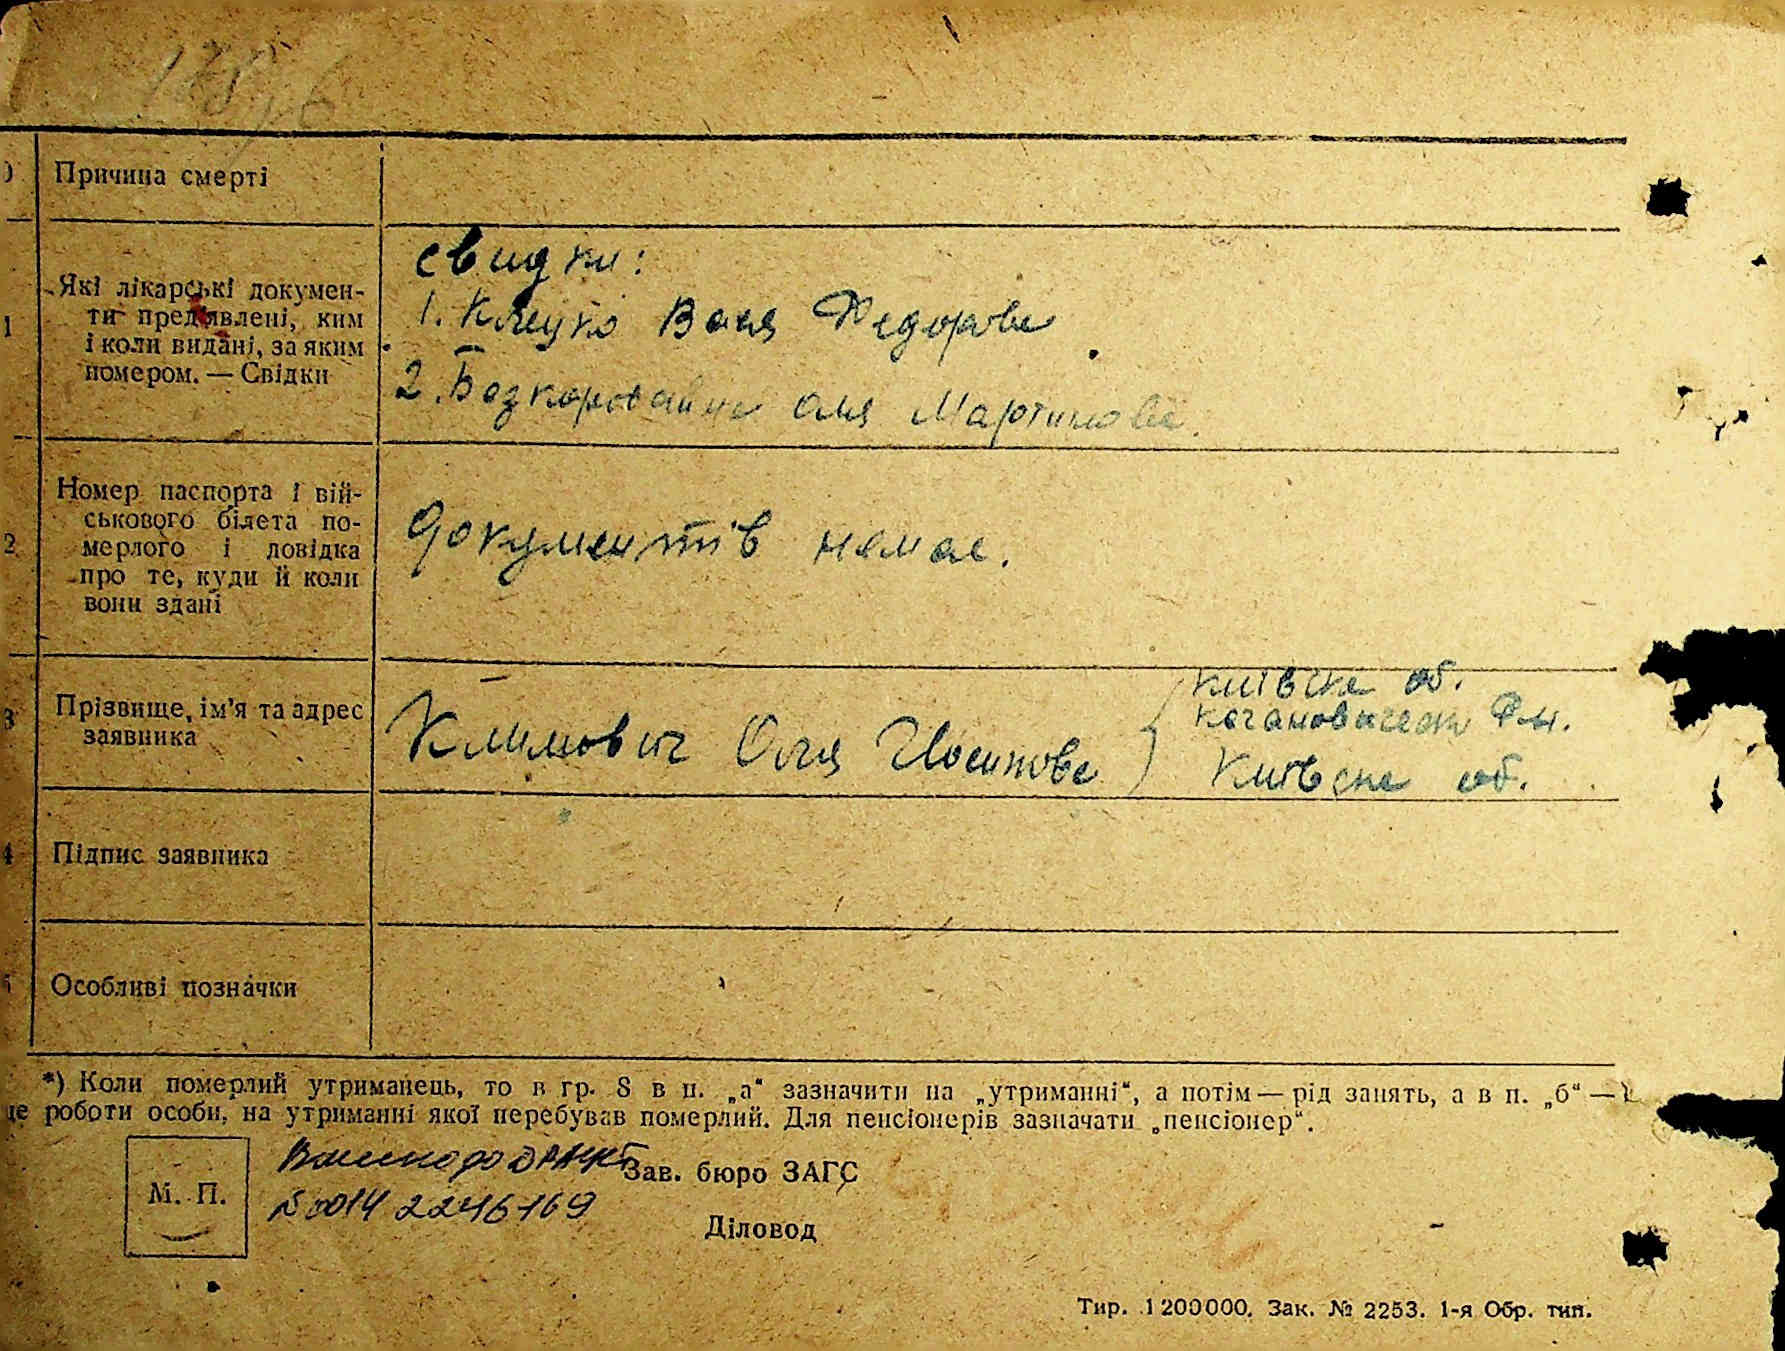 Причина смерті
Які лікарські докумен-
ти пред'явлені, ким
і коли видані, за яким
номером. — Свідки
свидки:
1. Клецко Ваня Федорове
2. Безкоровайне Оля Мартинове
Номер паспорта і вій-
ськового білета по-
мерлого і довідка
про те, куди й коли
вони здані
Документів немае.
Прізвище, ім'я та адрес
заявника
Климович Оля Йосипове
Київске об.
Кагановическ Р-н.
Київске об.
Підпис заявника
Особливі позначки
*) Коли померлий утриманець, то в гр. 8 в п. „а“ зазначити на „утриманні“, а потім — рід занять, а в п. „б“ —
це роботи особи, на утриманні якої перебував померлий. Для пенсіонерів зазначати „пенсіонер“.
М. П.
Зав. бюро ЗАГС
00142246169
Діловод
Тир. 1200000. Зак. № 2253. 1-я Обр. тип.